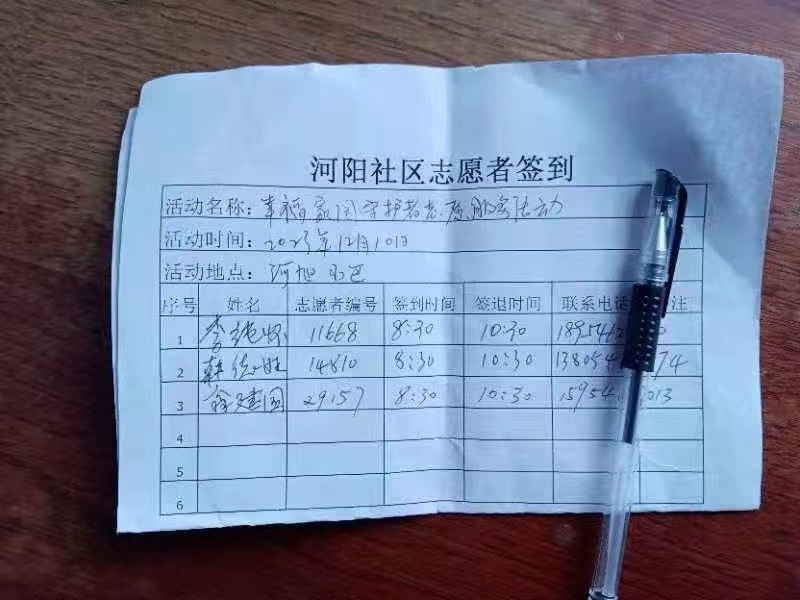 河阳社区志愿者签到
活动名称：幸福家园守护者志愿服务活动
活动时间：2023年12月10日
活动地点：河旭小区
序号 姓名 志愿者编号 签到时间 签退时间 联系电话 注
1 李 11668 8:30 10:30 189546
2 韩 胜 14810 8:30 10:30 138054 74
3 建国 29157 8:30 10:30 15954 013
4
5
6